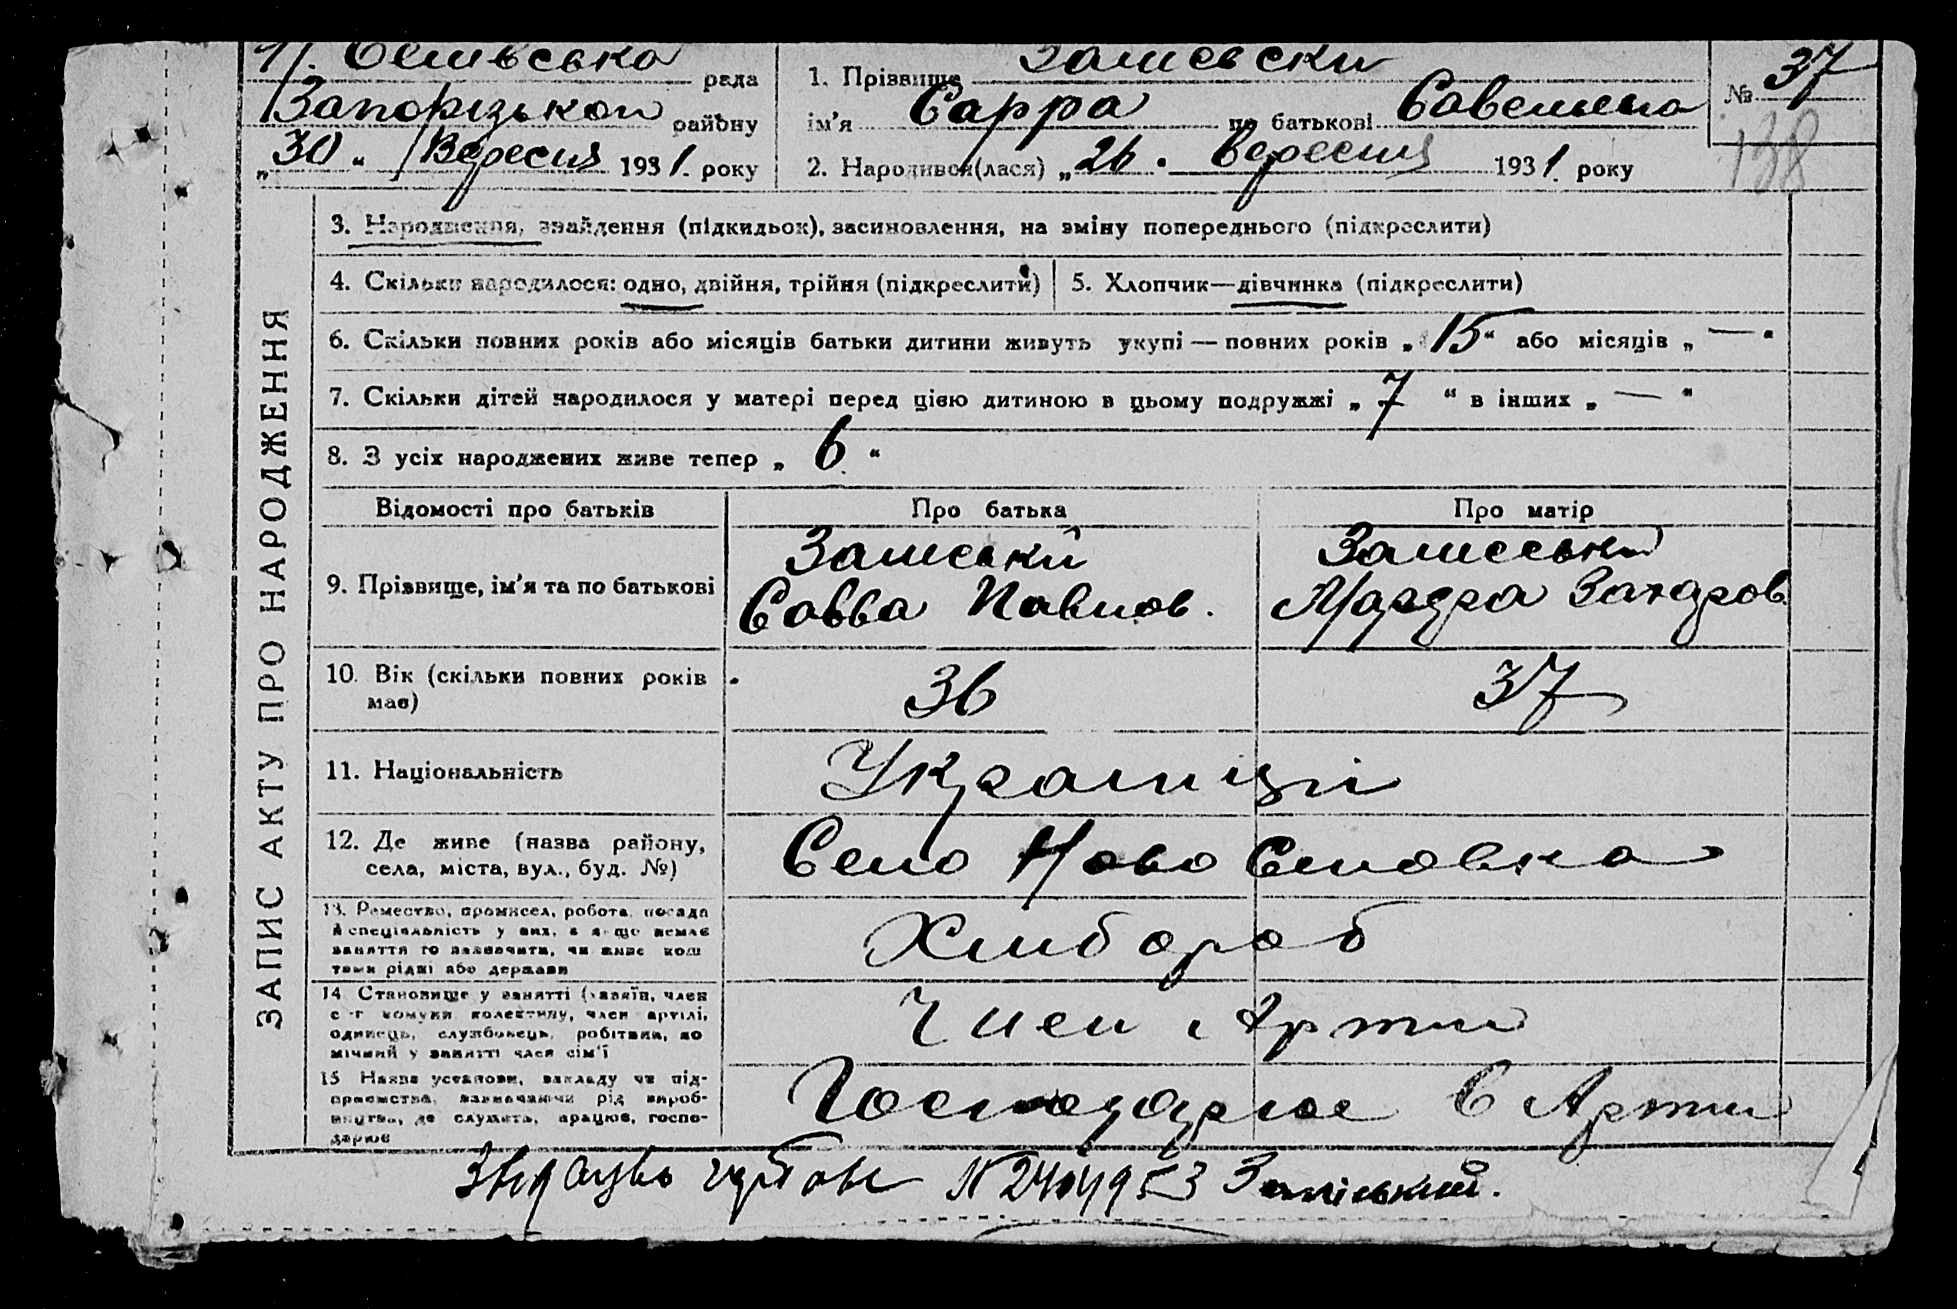 рада
Запоризькои району
„30“ Вересня 1931. року
1. Прізвище
ім'я Сарра по батькові
2. Народився(лася) „26. Вересня 1931. року
№ 37
138
ЗАПИС АКТУ ПРО НАРОДЖЕННЯ
3. Народження, знайдення (підкидьок), засиновлення, на зміну попереднього (підкреслити)
4. Скільки народилося: одно, двійня, трійня (підкреслити)
5. Хлопчик—дівчинка (підкреслити)
6. Скільки повних років або місяців батьки дитини живуть укупі — повних років „15“ або місяців „—“
7. Скільки дітей народилося у матері перед цією дитиною в цьому подружжі „7“ в інших „—“
8. З усіх народжених живе тепер „6“
Відомості про батьків Про батька Про матір
9. Прізвище, ім'я та по батькові
Савва Павлов.
10. Вік (скільки повних років 36 37
має)
11. Національність Украинці
12. Де живе (назва району, Село Ново Селовка
села, міста, вул., буд. №)
13. Ремество, промисел, робота, посада
й спеціяльність у них, а якщо немає
заняття то зазначити, чи живе кош
тами рідні або держави
Хлибороб
14. Становище у занятті (хазяїн, член
с-г комуни колективу, член артілі,
одинець, службовець, робітник, по
мічний у занятті член сім'ї
Член Артили
15. Назва установи, закладу чи під-
приємства, зазначаючи рід вироб-
ництва, де служить, працює, госпо-
дарює
Господарює в Артили